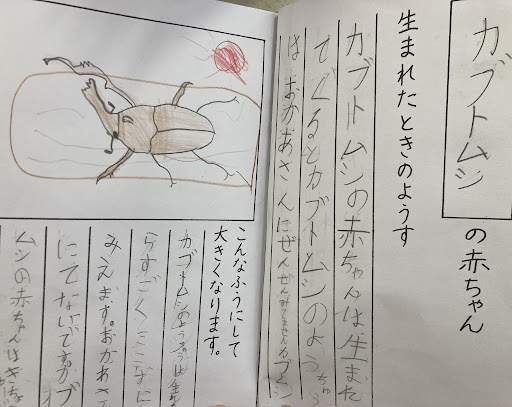 カブトムシ の赤ちゃん
生まれたときのようす
カブトムシの赤ちゃんは生また
てくるとカブトムシのようちゅう
は おかあさんにぜんぜんみてませんカブト
こんなふうにして
大きくなります。
カブトムシのようちゅうは
らすごく
みえます。おかあさ
にてないですカブ
ムシの赤ちゃんは